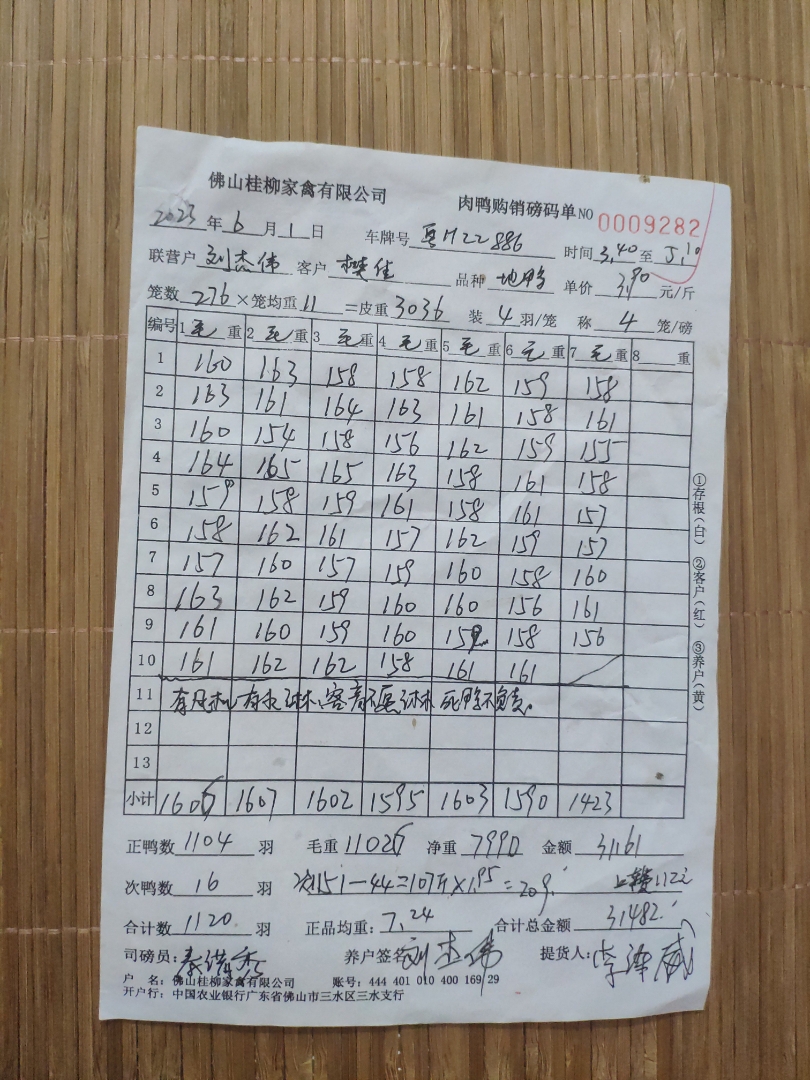 佛山桂柳家禽有限公司 肉鸭购销磅码单 NO 0009282
2023年6月1日 车牌号 粤H22886 时间 3,40 至 5,10
联营户 刘杰伟 客户 樊佳 品种 地鸭 单价 3,90 元/斤
笼数 276 ×笼均重 11 =皮重 3036 装 4 羽/笼 称 4 笼/磅
编号 1 毛 重 2 毛 重 3 毛 重 4 毛 重 5 毛 重 6 毛 重 7 毛 重 8 重
1 160 163 158 158 162 159 158
2 163 161 164 163 161 158 161
3 160 154 158 156 162 159 155
4 164 165 165 163 158 161 158
5 159 158 159 161 158 161 157
6 158 162 161 157 162 159 157
7 157 160 157 159 160 158 160
8 163 162 159 160 160 156 161
9 161 160 159 160 159 158 156
10 161 162 162 158 161 161
11 有风机 有水 淋、客 不 淋 死鸭不负责。
12
13
小计 1606 1607 1602 1595 1603 1590 1423
正鸭数 1104 羽 毛重 11026 净重 7990 金额 31161
次鸭数 16 羽 次151-44=107斤×1.95=209. 112
合计数 1120 羽 正品均重: 7,24 合计总金额 31482.
司磅员: 养户签名 刘杰伟 提货人: 李泽威
户 名: 佛山桂柳家禽有限公司 账号: 444 401 010 400 169 29
开户行: 中国农业银行广东省佛山市三水区三水支行
①存根(白) ②客户(红) ③养户(黄)